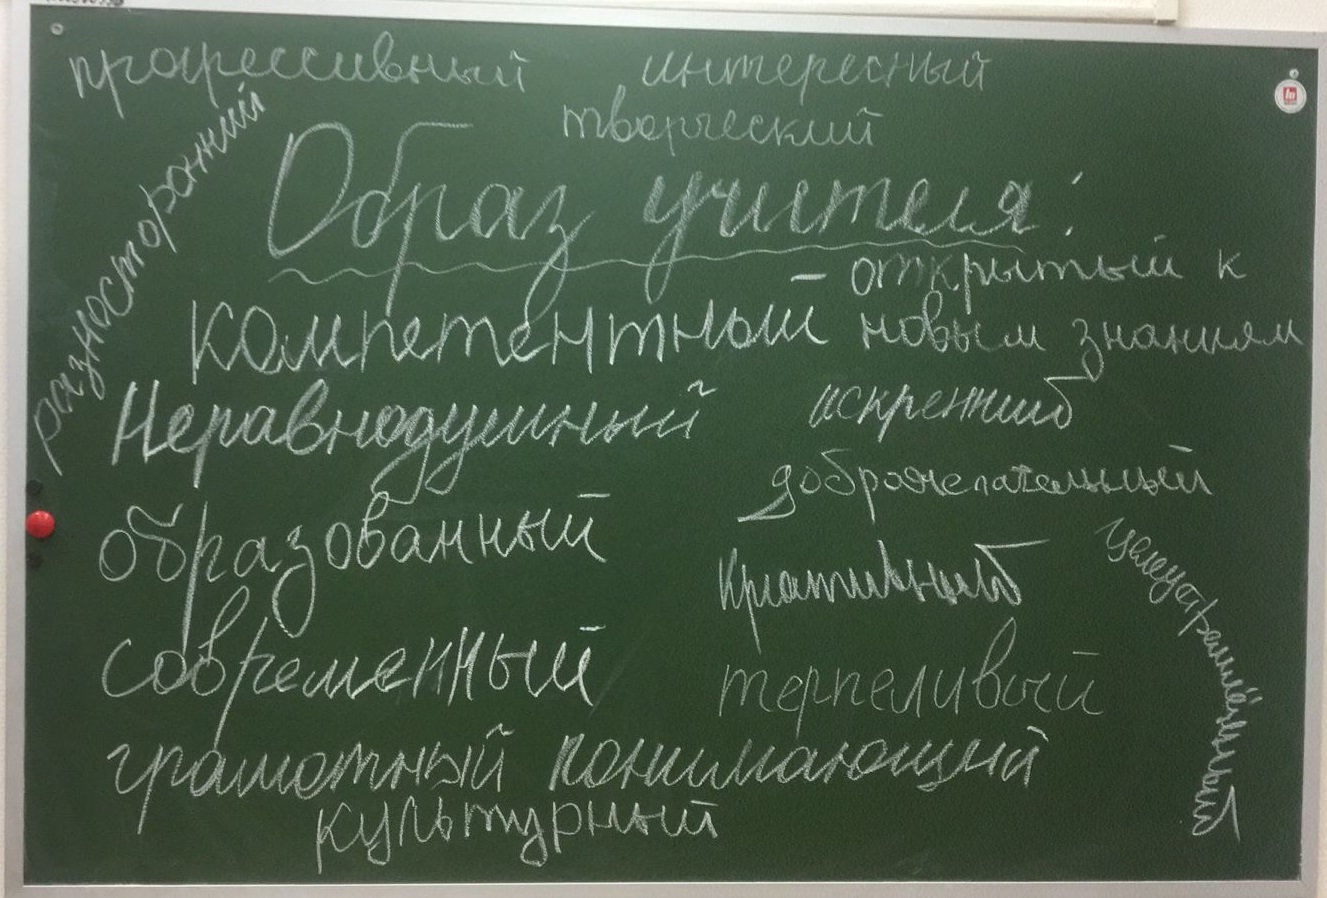 прогрессивный интересный
творческий
разносторонний
Образ учителя:
- открытый к
компетентный новым знаниям
Неравнодушный искренний
доброжелательный
образованный
креативный
целеустремлённый
современный терпеливый
грамотный понимающий
культурный